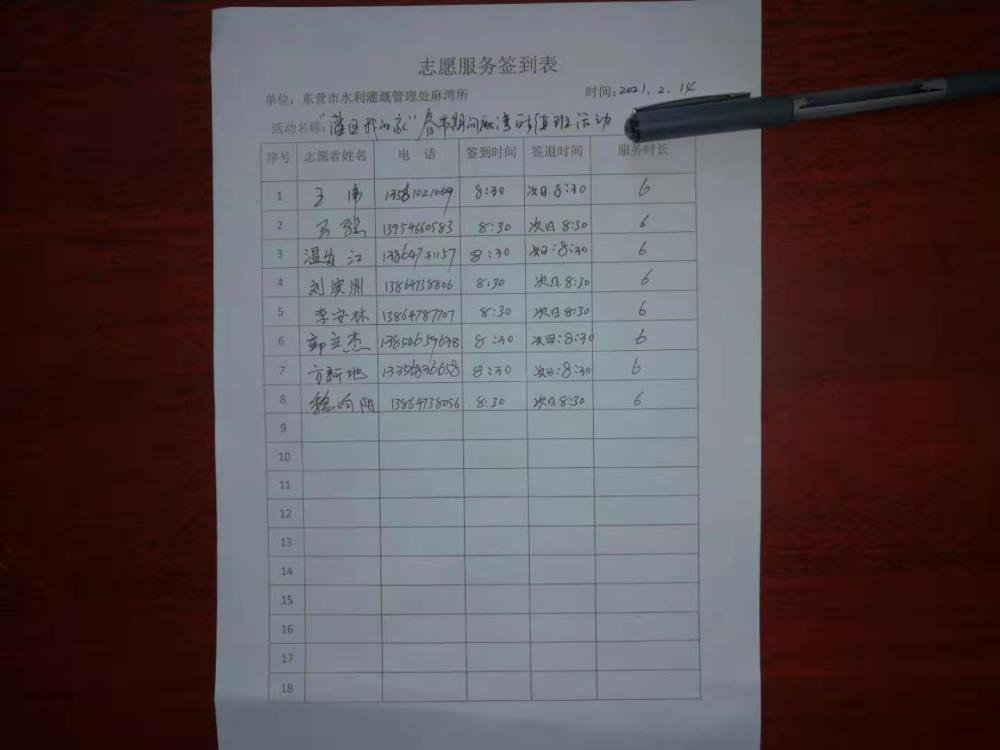 志愿服务签到表
单位：东营市水利灌溉管理处麻湾所 时间：2021.2.14
活动名称："灌区我的家"春节期间麻湾所值班活动
序号 志愿者姓名 电话 签到时间 签退时间 服务时长
1 王伟 8:30 次日8:30 6
2 13954660583 8:30 次日8:30 6
3 温 江 13864731157 8:30 次日:8:30 6
4 刘滨洲 13864738806 8:30 次日8:30 6
5 李安林 13864787707 8:30 次日8:30 6
6 郭立杰 13854659698 8:30 次日:8:30 6
7 方新地 13356836658 8:30 次日:8:30 6
8 魏向阴 13864738056 8:30 次日8:30 6
9
10
11
12
13
14
15
16
17
18